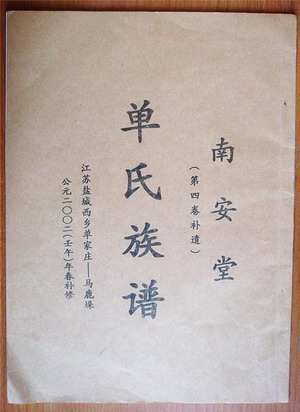 南安堂
（第四卷补遗）
单氏族谱
江苏盐城西乡单家庄——马鹿垛
公元二〇〇二（壬午）年春补修